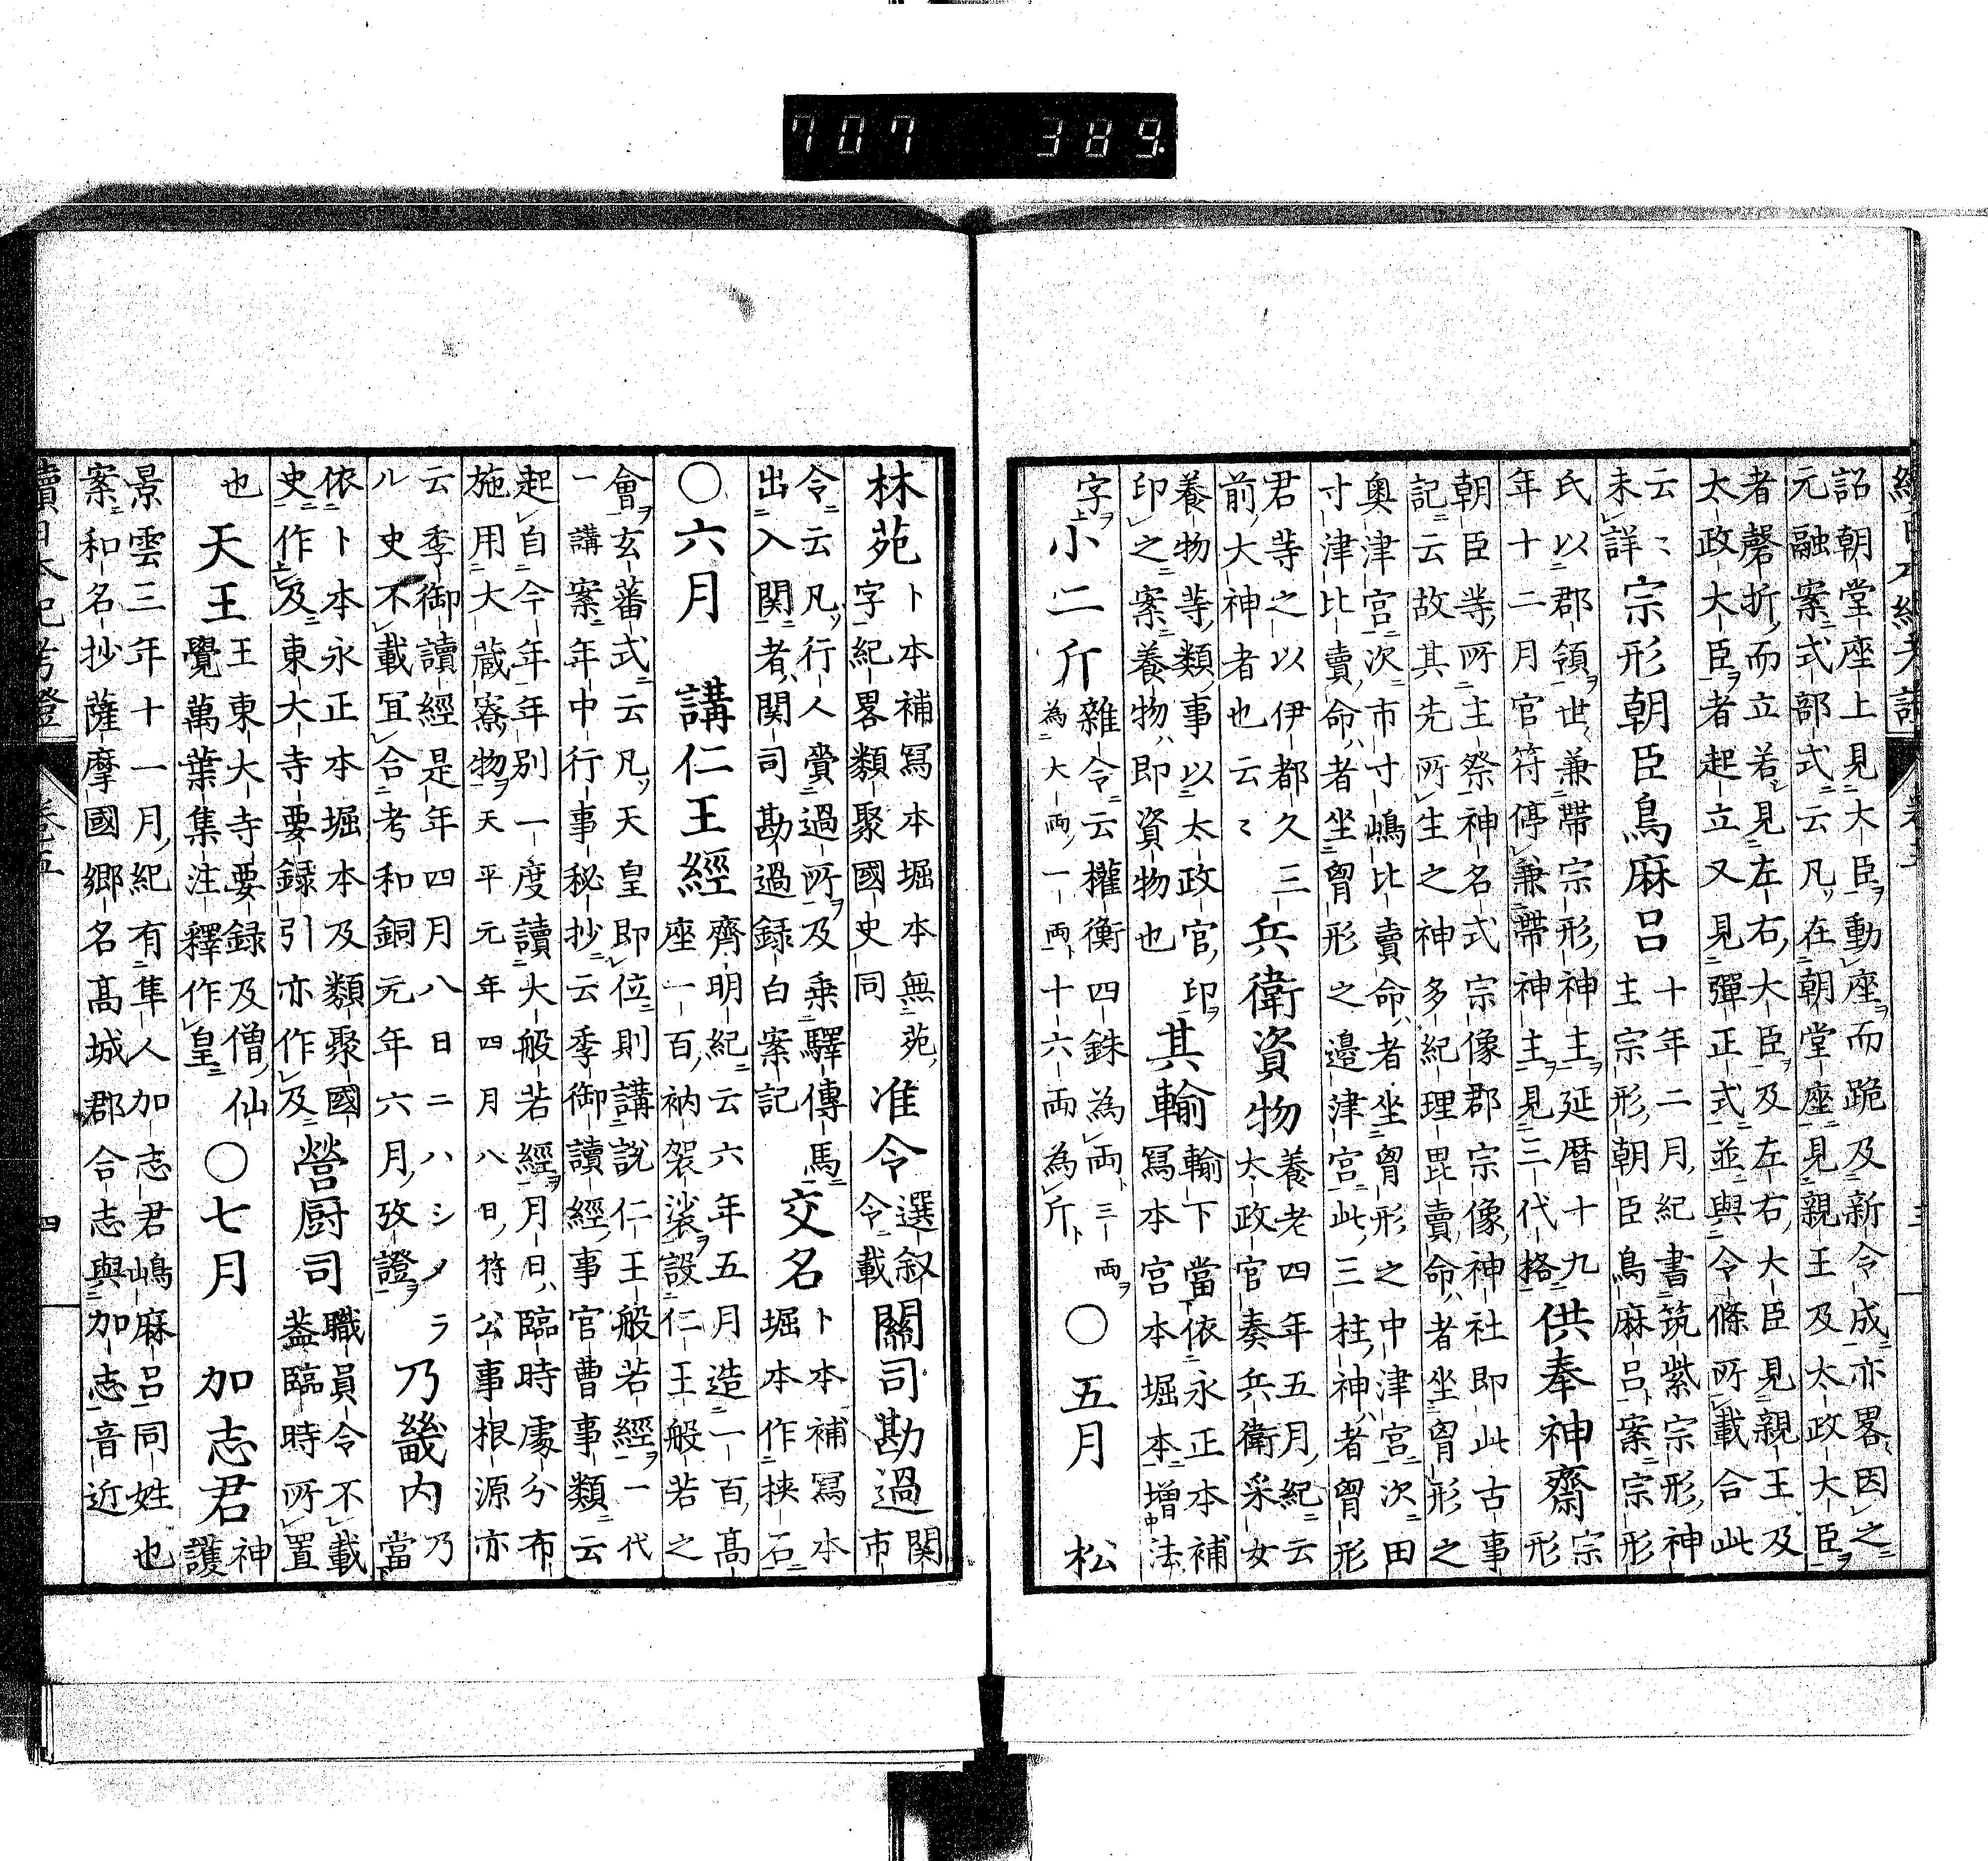 707 389.
詔朝堂座上見大臣動座而跪及新令成亦畧因之
元融案式部式云凡在朝堂座見親王及太政大臣
者磬折而立若見左右大臣及左右大臣見親王及
太政大臣者起立又見彈正式並與令條所載合此
云〻
未詳
宗形朝臣鳥麻呂
十年二月紀書筑紫宗形神
主宗形朝臣鳥麻呂案宗形
氏以郡領世兼帶宗形神主延暦十九
年十二月官符停兼帶神主見三代格
供奉神齋
宗
形
朝臣等所主祭神名式宗像郡宗像神社即此古事
記云故其先所生之神多紀理毘賣命者坐胷形之
奧津宮次市寸嶋比賣命者坐胷形之中津宮次田
寸津比賣命者坐胷形之邊津宮此三柱神者胷形
君等之以伊都久三
前大神者也云〻
兵衛資物
養老四年五月紀云
太政官奏兵衛采女
養物等類事以太政官印
印之案養物即資物也
其輸
輸下當依永正本補
冩本宮本堀本増法
字
小二斤
雜令云權衡四銖為兩三兩
為大兩一兩十六兩為斤
○五月
松
林苑
卜本補冩本堀本無苑
字紀畧類聚國史同
准令
選叙
令載
關司勘過
関
市
令云凡行人賷過所及乗驛傳馬
出入関者関司勘過録白案記
交名
卜本補冩本
堀本作挾石
○六月
講仁王經
齊明紀云六年五月造一百髙
座一百衲袈裟設仁王般若之
會玄蕃式云凡天皇即位則講説仁王般若經一代
一講案年中行事秘抄云季御讀經事官曹事類云
起自今年年別一度讀大般若經月日臨時處分布
施用大蔵寮物天平元年四月八日符公事根源亦
云季御讀經是年四月八日ニハシメラ
ル史不載冝合考和銅元年六月攷證
乃畿内
乃
當
依卜本永正本堀本及類聚國
史作及東大寺要録引亦作及
營厨司
職員令不載
葢臨時所置
也
天王
王東大寺要録及僧仙
覺萬葉集注釋作皇
○七月
加志君
神
護
景雲三年十一月紀有隼人加志君嶋麻呂同姓也
案和名抄薩摩國郷名髙城郡合志與加志音近
續日本紀考證
卷五
四